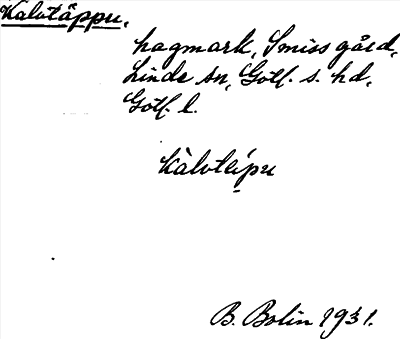 Kalvtäppu,
hagmark, Smiss gård,
Linde sn, Gotl. s. hd,
Gotl. l.
kàlvtäípu
B. Bolin 1931.